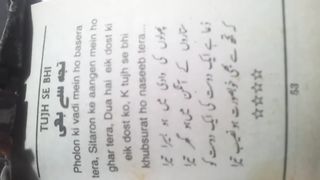 TUJH SE BHI
تجھ سے بھی
Pholon ki vadi mein ho basera
tera, Sitaron ke aangen mein ho
ghar tera, Dua hai eik dost ki
eik dost ko, K tujh se bhi
khubsurat ho naseeb tera...
پھولوں کی وادی میں ہو بسیرا تیرا
ستاروں کے آنگن میں ہو گھر تیرا
دعا ہے ایک دوست کی ایک دوست کو
کہ تجھ سے بھی خوبصورت ہو نصیب تیرا
☆☆☆☆
53